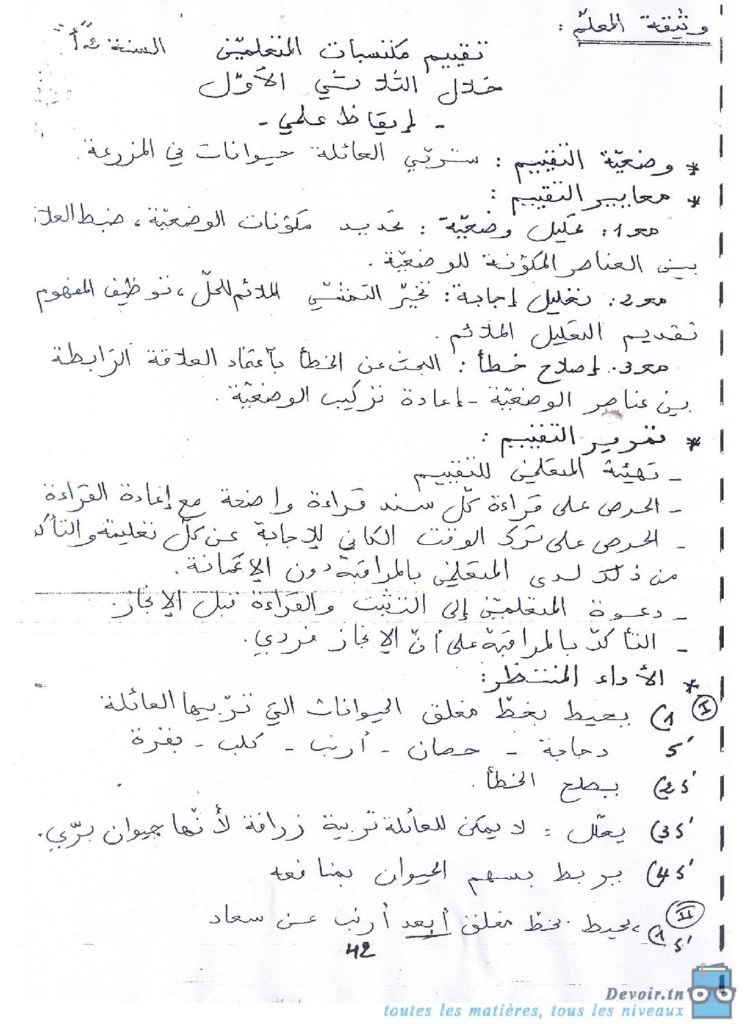 وثيقة المعلم :
تقييم مكتسبات المتعلمين السنة 2 أ
خلال الثلاثي الأوّل
- إيقاظ علمي -
* وضعيّة التقييم : ستربّي العائلة حيوانات في المزرعة.
* معايير التقييم :
مع1: تحليل وضعيّة : تحديد مكوّنات الوضعيّة، ضبط العلا
بين العناصر المكوّنة للوضعيّة.
مع2: تعليل إجابة : تخيّر التمشّي الملائم للحلّ، توظيف المفهوم
تقديم التعليل الملائم.
مع3. إصلاح خطأ : البحث عن الخطأ باعتماد العلاقة الرّابطة
بين عناصر الوضعيّة - إعادة تركيب الوضعيّة.
* تمرير التقييم :
- تهيئة المتعلمين للتقييم
- الحرص على قراءة كلّ سند قراءة واضحة مع إعادة القراءة
- الحرص على ترك الوقت الكافي للإجابة عن كلّ تعليمة والتأكد
من ذلك لدى المتعلمين بالمراقبة دون الإعانة.
- دعوة المتعلمين إلى التثبت والقراءة قبل الإنجاز.
- التأكّد بالمراقبة على أنّ الإنجاز فردي.
* الأداء المنتظر:
I 1) يحيط بخطّ مغلق الحيوانات التي تربّيها العائلة
5' دجاجة - حصان - أرنب - كلب - بقرة
2) 5' يصلح الخطأ.
3) 5' يعلّل : لا يمكن للعائلة تربية زرافة لأنّها حيوان برّي.
4) 5' يربط بسهم الحيوان بمنافعه
II 1) 5' يحيط بخطّ مغلق أبعد أرنب عن سعاد
42
Devoir.tn
toutes les matières, tous les niveaux